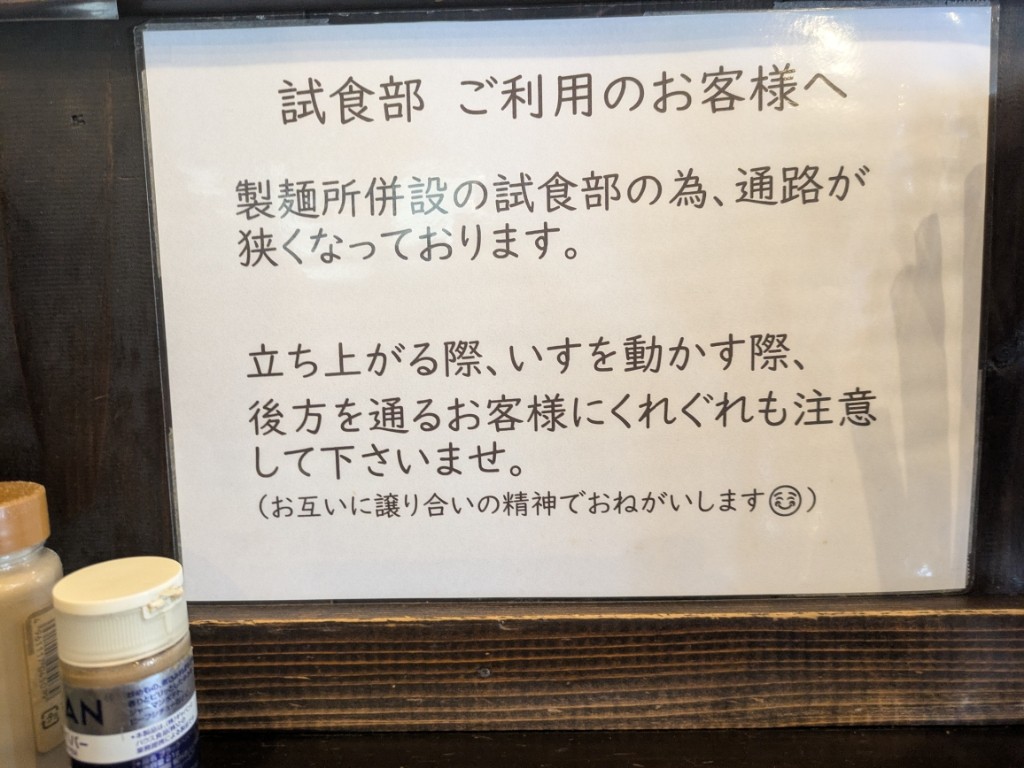 試食部 ご利用のお客様へ
製麺所併設の試食部の為、通路が
狭くなっております。
立ち上がる際、いすを動かす際、
後方を通るお客様にくれぐれも注意
して下さいませ。
（お互いに譲り合いの精神でおねがいします😊）
AN